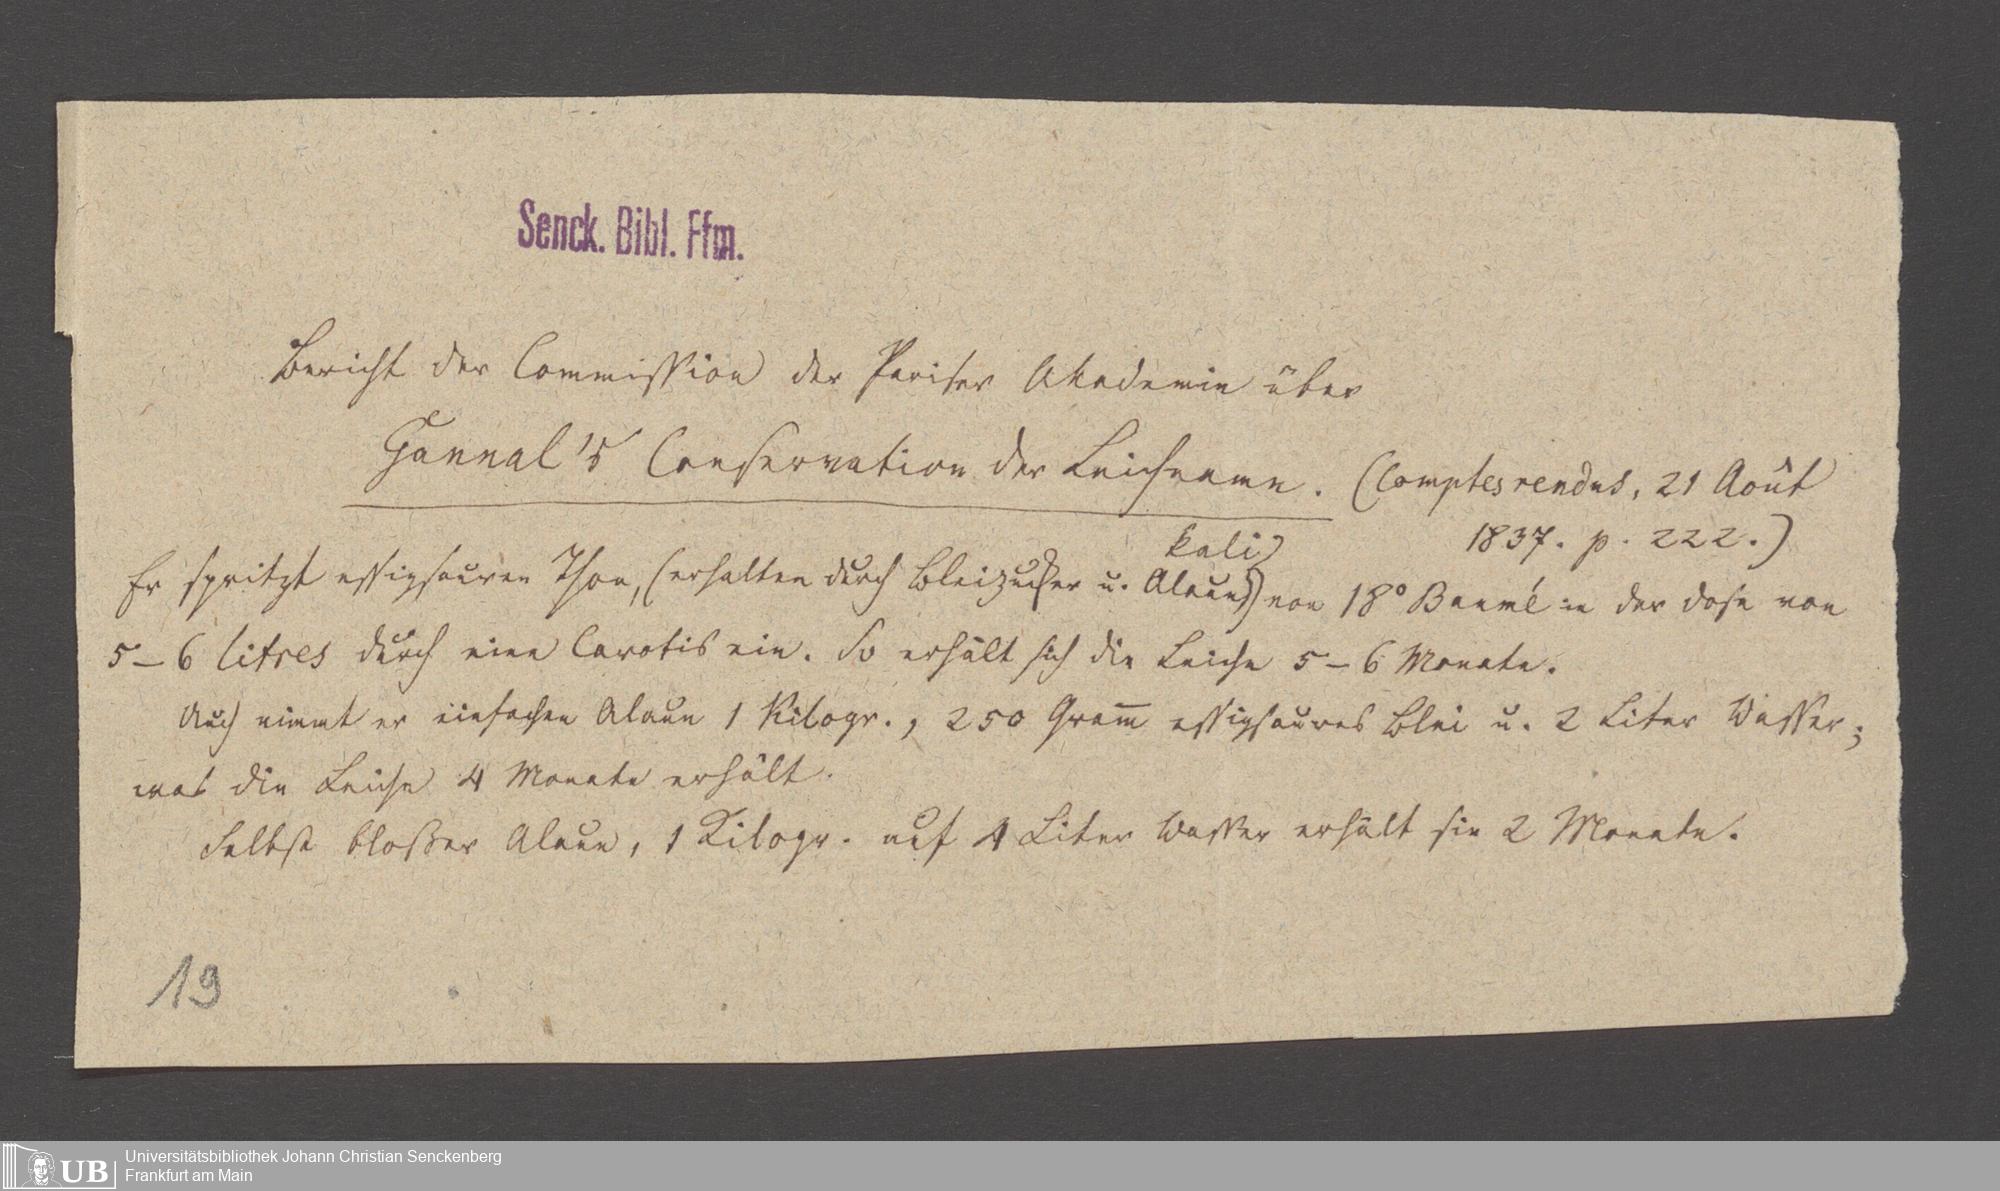 Senck. Bibl. Ffm.
Bericht der Commission der Pariser Akademie über
Gannal's Conservation der Leichname. (Comptes rendus, 21 Août
1837. p. 222.)
kali)
Er spritzt essigsauren Thon, (erhalten durch Bleizucker u. Alaun)) von 18° Baumé in der Dose von
5–6 litres durch eine Carotis ein. So erhält sich die Leiche 5–6 Monate.
Auch nimmt er einfachen Alaun 1 Kilogr., 250 Gram̅ essigsaures Blei u. 2 Liter Wasser;
was die Leiche 4 Monate erhält.
Selbst bloßer Alaun, 1 Kilogr. auf 4 Liter Wasser erhält sie 2 Monate.
19
UB
Universitätsbibliothek Johann Christian Senckenberg
Frankfurt am Main